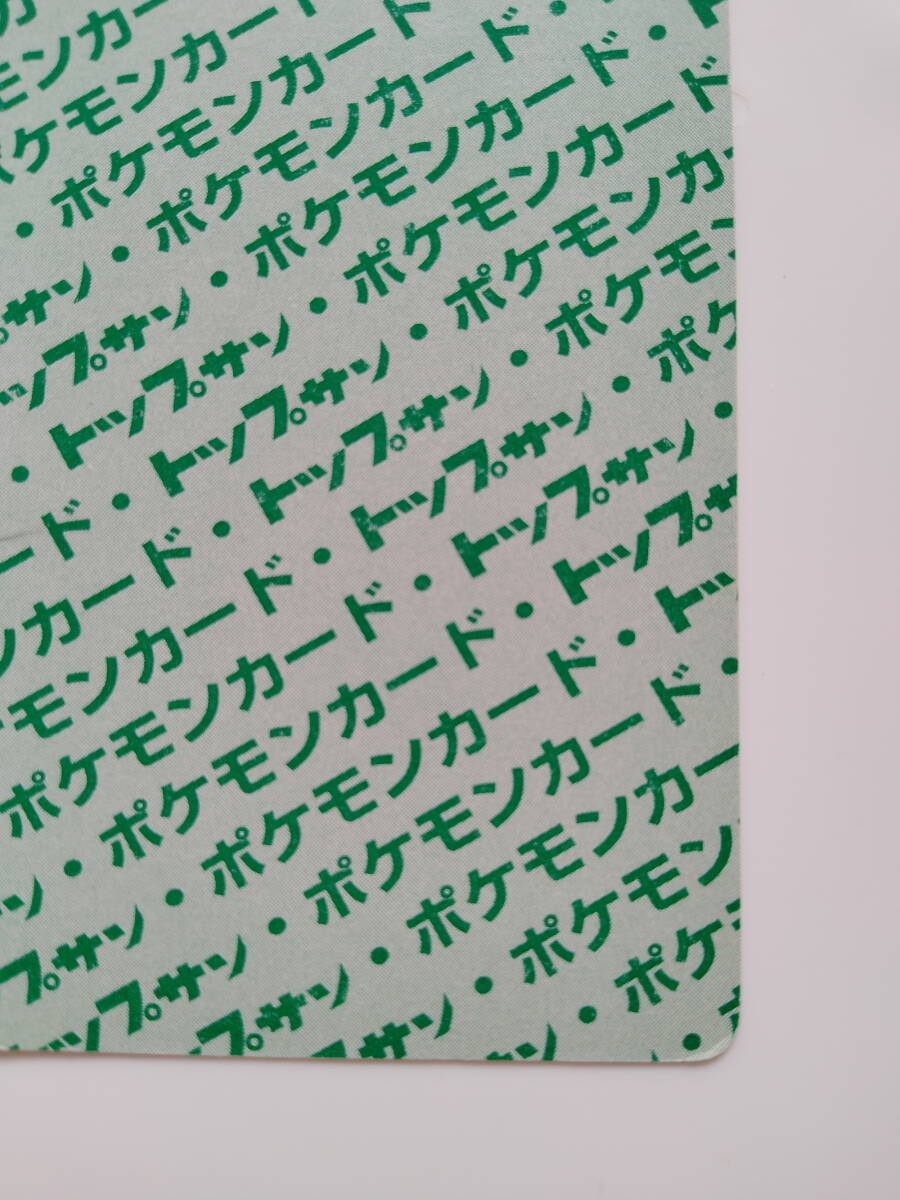 カ
モンカー
ポケモンカード
・ポケモンカード・
サン・ポケモンカード・
ップサン・ポケモンカード・ト
・トップサン・ポケモンカード
ード・トップサン・ポケモンカ
ンカード・トップサン・ポケモン
モンカード・トップサン・ポケ
ポケモンカード・トップサン・
ン・ポケモンカード・トップサ
プサン・ポケモンカード・トッ
トップサン・ポケモンカード・
プサン・ポケモンカー
サン・ポケモン
ン・ポケ
・